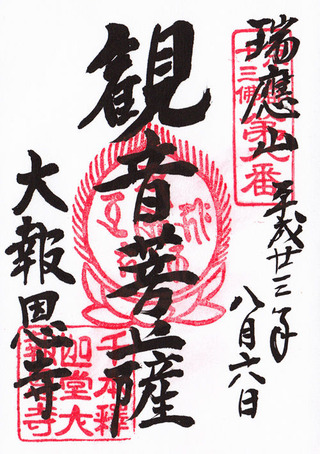 瑞應山
平成廿三年
八月六日
観音菩薩
大報恩寺
千本釋
迦堂大
報恩寺